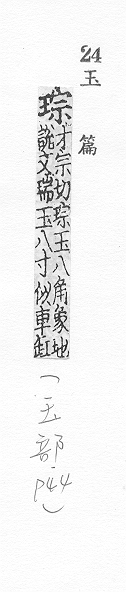 24
玉篇
琮
才宗切琮玉八角象地
說文瑞玉八寸似車釭
(玉部 p44)